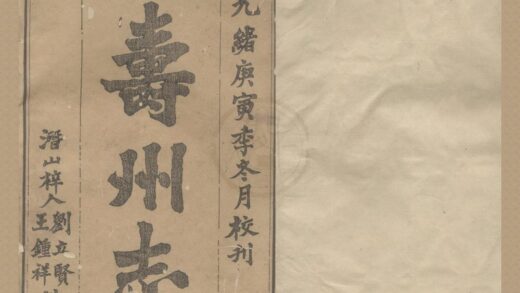 光緒庚寅季冬月校刊
壽州志
潛山梓人劉立賢
王鍾祥